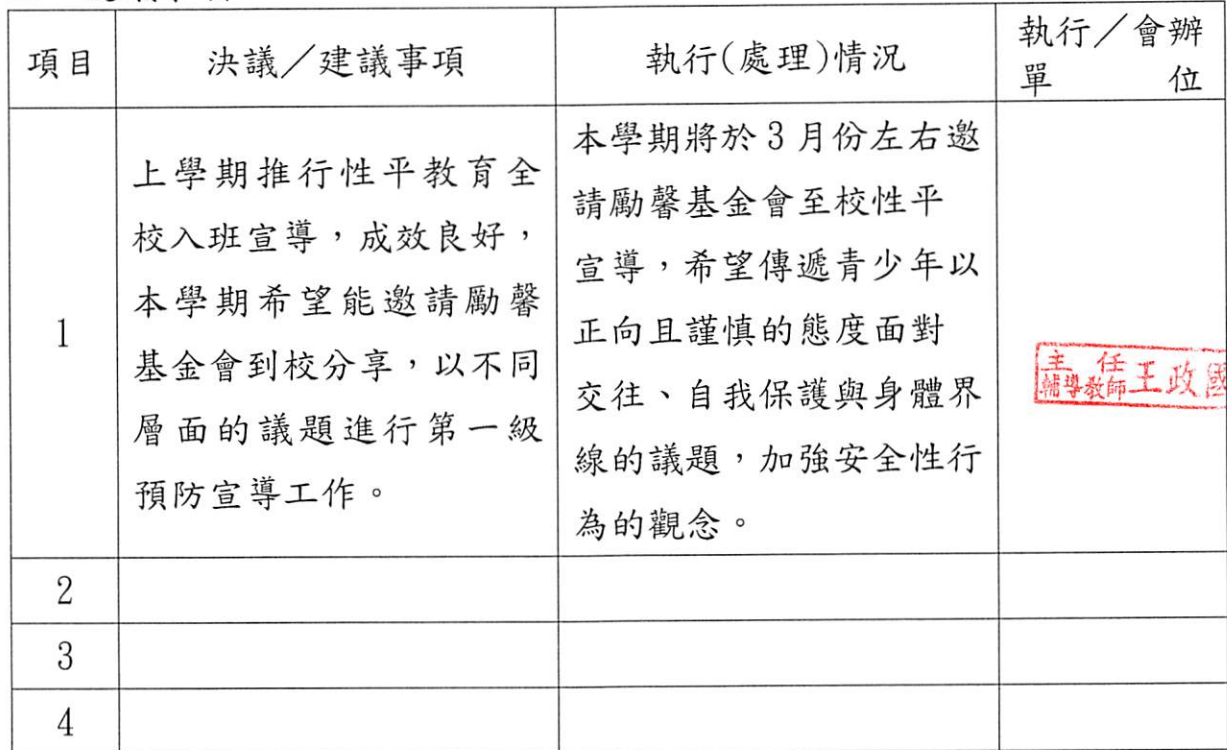 項目
決議／建議事項
執行(處理)情況
執行／會辦
單位
1
上學期推行性平教育全
校入班宣導，成效良好，
本學期希望能邀請勵馨
基金會到校分享，以不同
層面的議題進行第一級
預防宣導工作。
本學期將於3月份左右邀
請勵馨基金會至校性平
宣導，希望傳遞青少年以
正向且謹慎的態度面對
交往、自我保護與身體界
線的議題，加強安全性行
為的觀念。
主任
輔導教師王政國
2
3
4